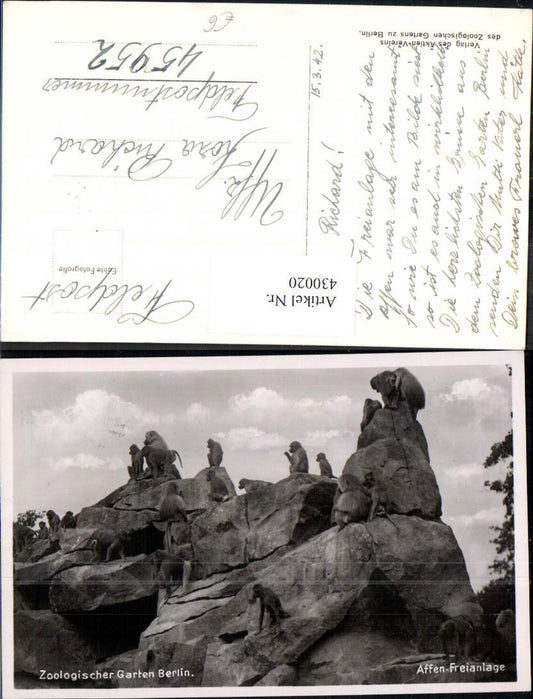 £6
Verlag des Aktien-Vereins
des Zoologischen Gartens zu Berlin.
15.3.42.
Richard!
Die Freianlage mit den
Affen war sehr interessant
so wie Du es am Bilde siehst
so ist es auch in wirklichkeit
Die herzlichsten Grüsse aus
dem Zoologischen Garten Berlin
senden Dir Mutti Vater und
Dein braves Frauerl
Feldpost
Uffz.
Richard
Feldpostnummer
45952
Echte Fotografie
Artikel Nr.
430020
Zoologischer Garten Berlin.
Affen-Freianlage